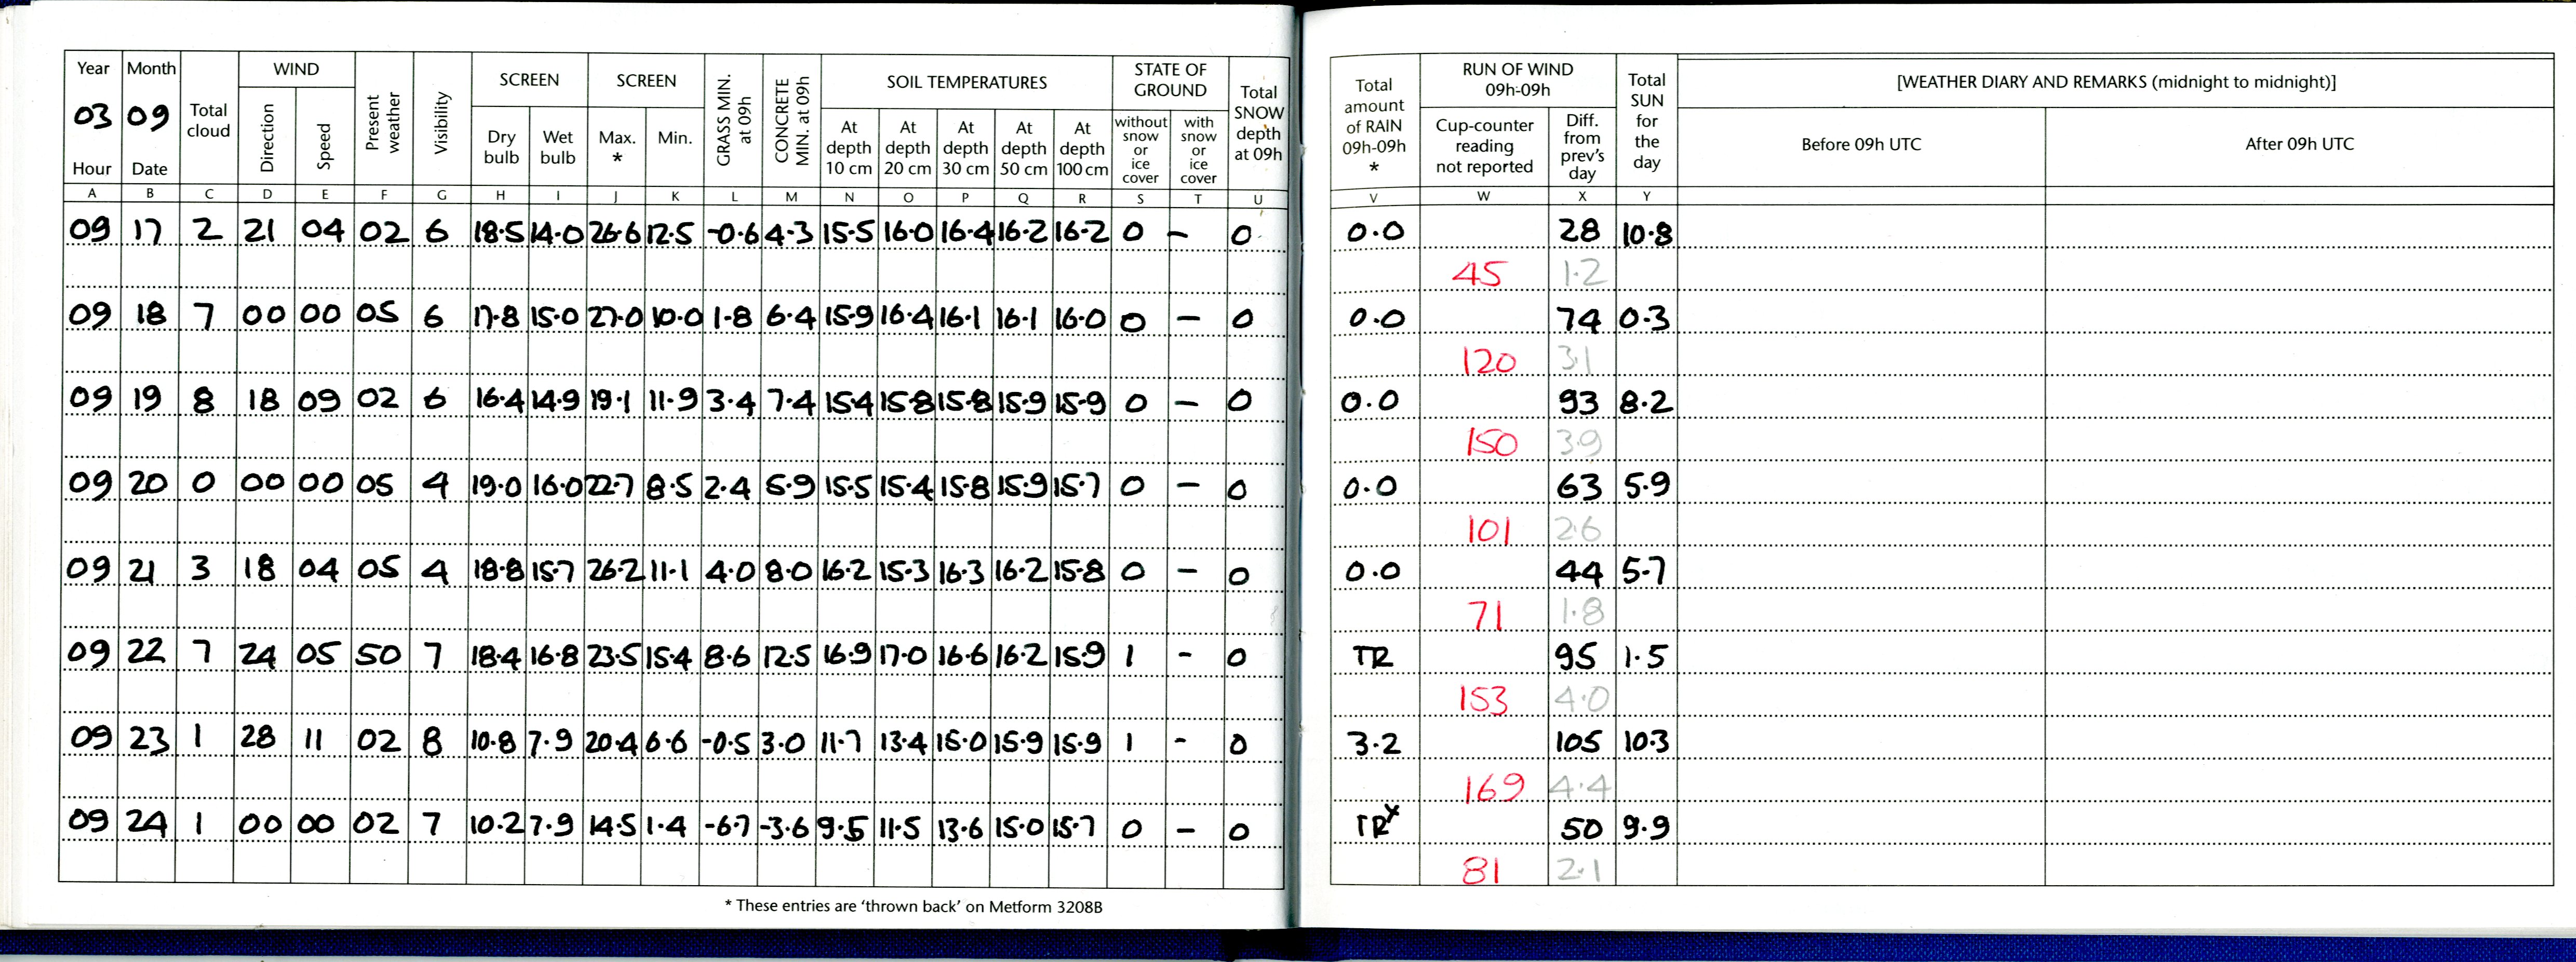 Year Month WIND SCREEN SCREEN SOIL TEMPERATURES STATE OF GROUND
03 09 Total cloud Direction Speed Present weather Visibility Dry bulb Wet bulb Max. * Min. GRASS MIN. at 09h CONCRETE MIN. at 09h At depth 10 cm At depth 20 cm At depth 30 cm At depth 50 cm At depth 100 cm without snow or ice cover with snow or ice cover Total SNOW depth at 09h
Hour Date
A B C D E F G H I J K L M N O P Q R S T U
09 17 2 21 04 02 6 18.5 14.0 26.6 12.5 -0.6 4.3 15.5 16.0 16.4 16.2 16.2 0 - 0
09 18 7 00 00 05 6 17.8 15.0 27.0 10.0 1.8 6.4 15.9 16.4 16.1 16.1 16.0 0 - 0
09 19 8 18 09 02 6 16.4 14.9 19.1 11.9 3.4 7.4 15.4 15.8 15.8 15.9 15.9 0 - 0
09 20 0 00 00 05 4 19.0 16.0 22.7 8.5 2.4 5.9 15.5 15.4 15.8 15.9 15.7 0 - 0
09 21 3 18 04 05 4 18.8 15.7 26.2 11.1 4.0 8.0 16.2 15.3 16.3 16.2 15.8 0 - 0
09 22 7 24 05 50 7 18.4 16.8 23.5 15.4 8.6 12.5 16.9 17.0 16.6 16.2 15.9 1 - 0
09 23 1 28 11 02 8 10.8 7.9 20.4 6.6 -0.5 3.0 11.7 13.4 15.0 15.9 15.9 1 - 0
09 24 1 00 00 02 7 10.2 7.9 14.5 1.4 -6.7 -3.6 9.5 11.5 13.6 15.0 15.7 0 - 0
* These entries are 'thrown back' on Metform 3208B
Total amount of RAIN 09h-09h * RUN OF WIND 09h-09h Total SUN for the day [WEATHER DIARY AND REMARKS (midnight to midnight)]
Cup-counter reading not reported Diff. from prev's day Before 09h UTC After 09h UTC
V W X Y
0.0 28 10.8
45 1.2
0.0 74 0.3
120 3.1
0.0 93 8.2
150 3.9
0.0 63 5.9
101 2.6
0.0 44 5.7
71 1.8
TR 95 1.5
153 4.0
3.2 105 10.3
169 4.4
TRx 50 9.9
81 2.1